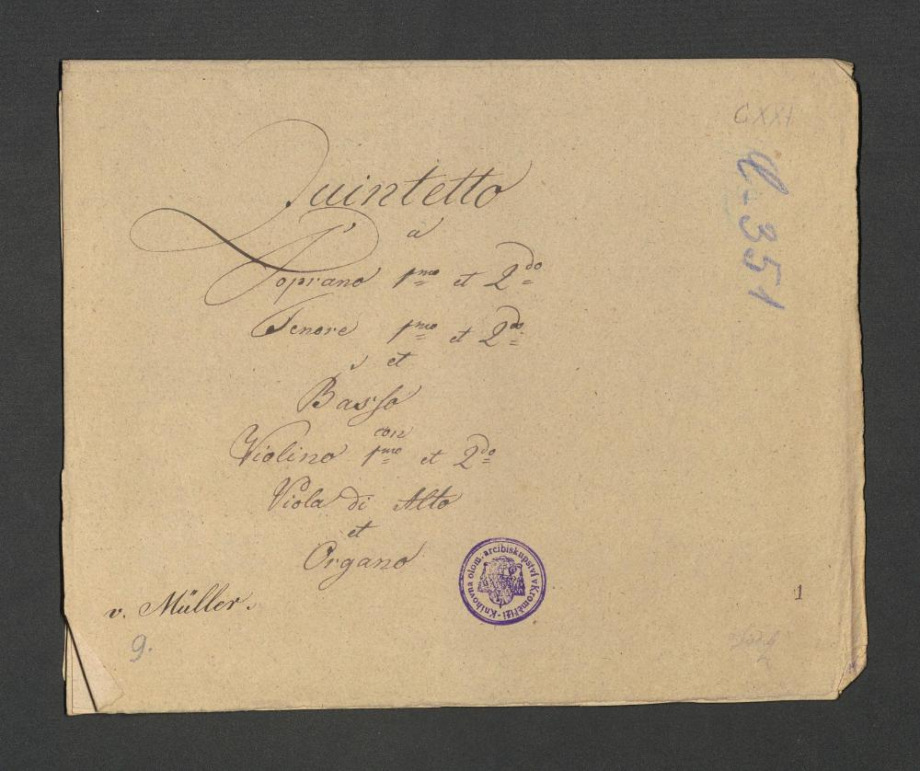 CXXI
C-351
Quintetto
a
Soprano 1mo et 2do
Tenore 1mo et 2do
et
Basso
con
Violino 1mo et 2do
Viola di Alto
et
Organo
v. Müller.
9.
Knihovna olom. arcibiskupství v Kroměříži
1